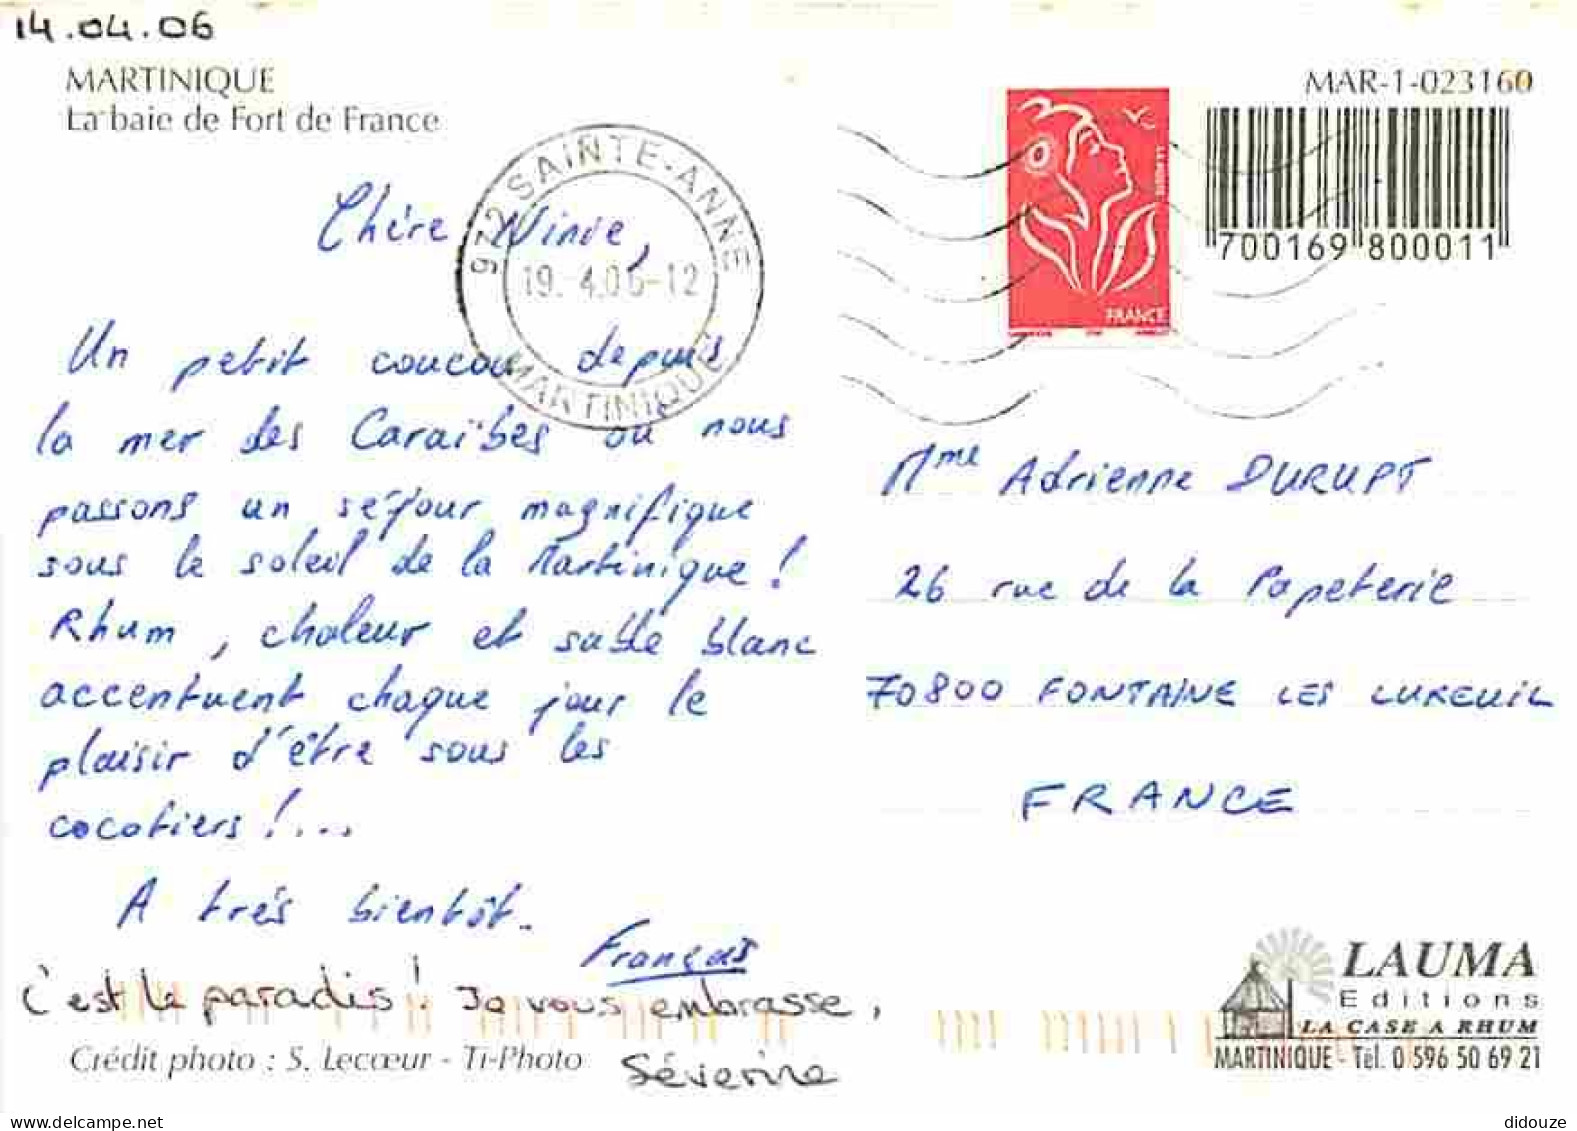 14.04.06
MARTINIQUE
La baie de Fort de France
MAR-1-023160
700169 800011
972 SAINTE-ANNE
19. 4.06-12
MARTINIQUE
LA POSTE
FRANCE
Chère Ninie,
Un petit coucou depuis
la mer des Caraïbes où nous
passons un séjour magnifique
sous le soleil de la Martinique !
Rhum, chaleur et sable blanc
accentuent chaque jour le
plaisir d'être sous les
cocotiers !...
A très bientôt..
François
c'est le paradis ! Je vous embrasse,
Séverine
Crédit photo : S. Lecœur - Ti-Photo
Mme Adrienne DURUPT
26 rue de la Papeterie
70800 FONTAINE LES LUXEUIL
FRANCE
LAUMA
Editions
LA CASE A RHUM
MARTINIQUE - Tél. 0 596 50 69 21
didouze